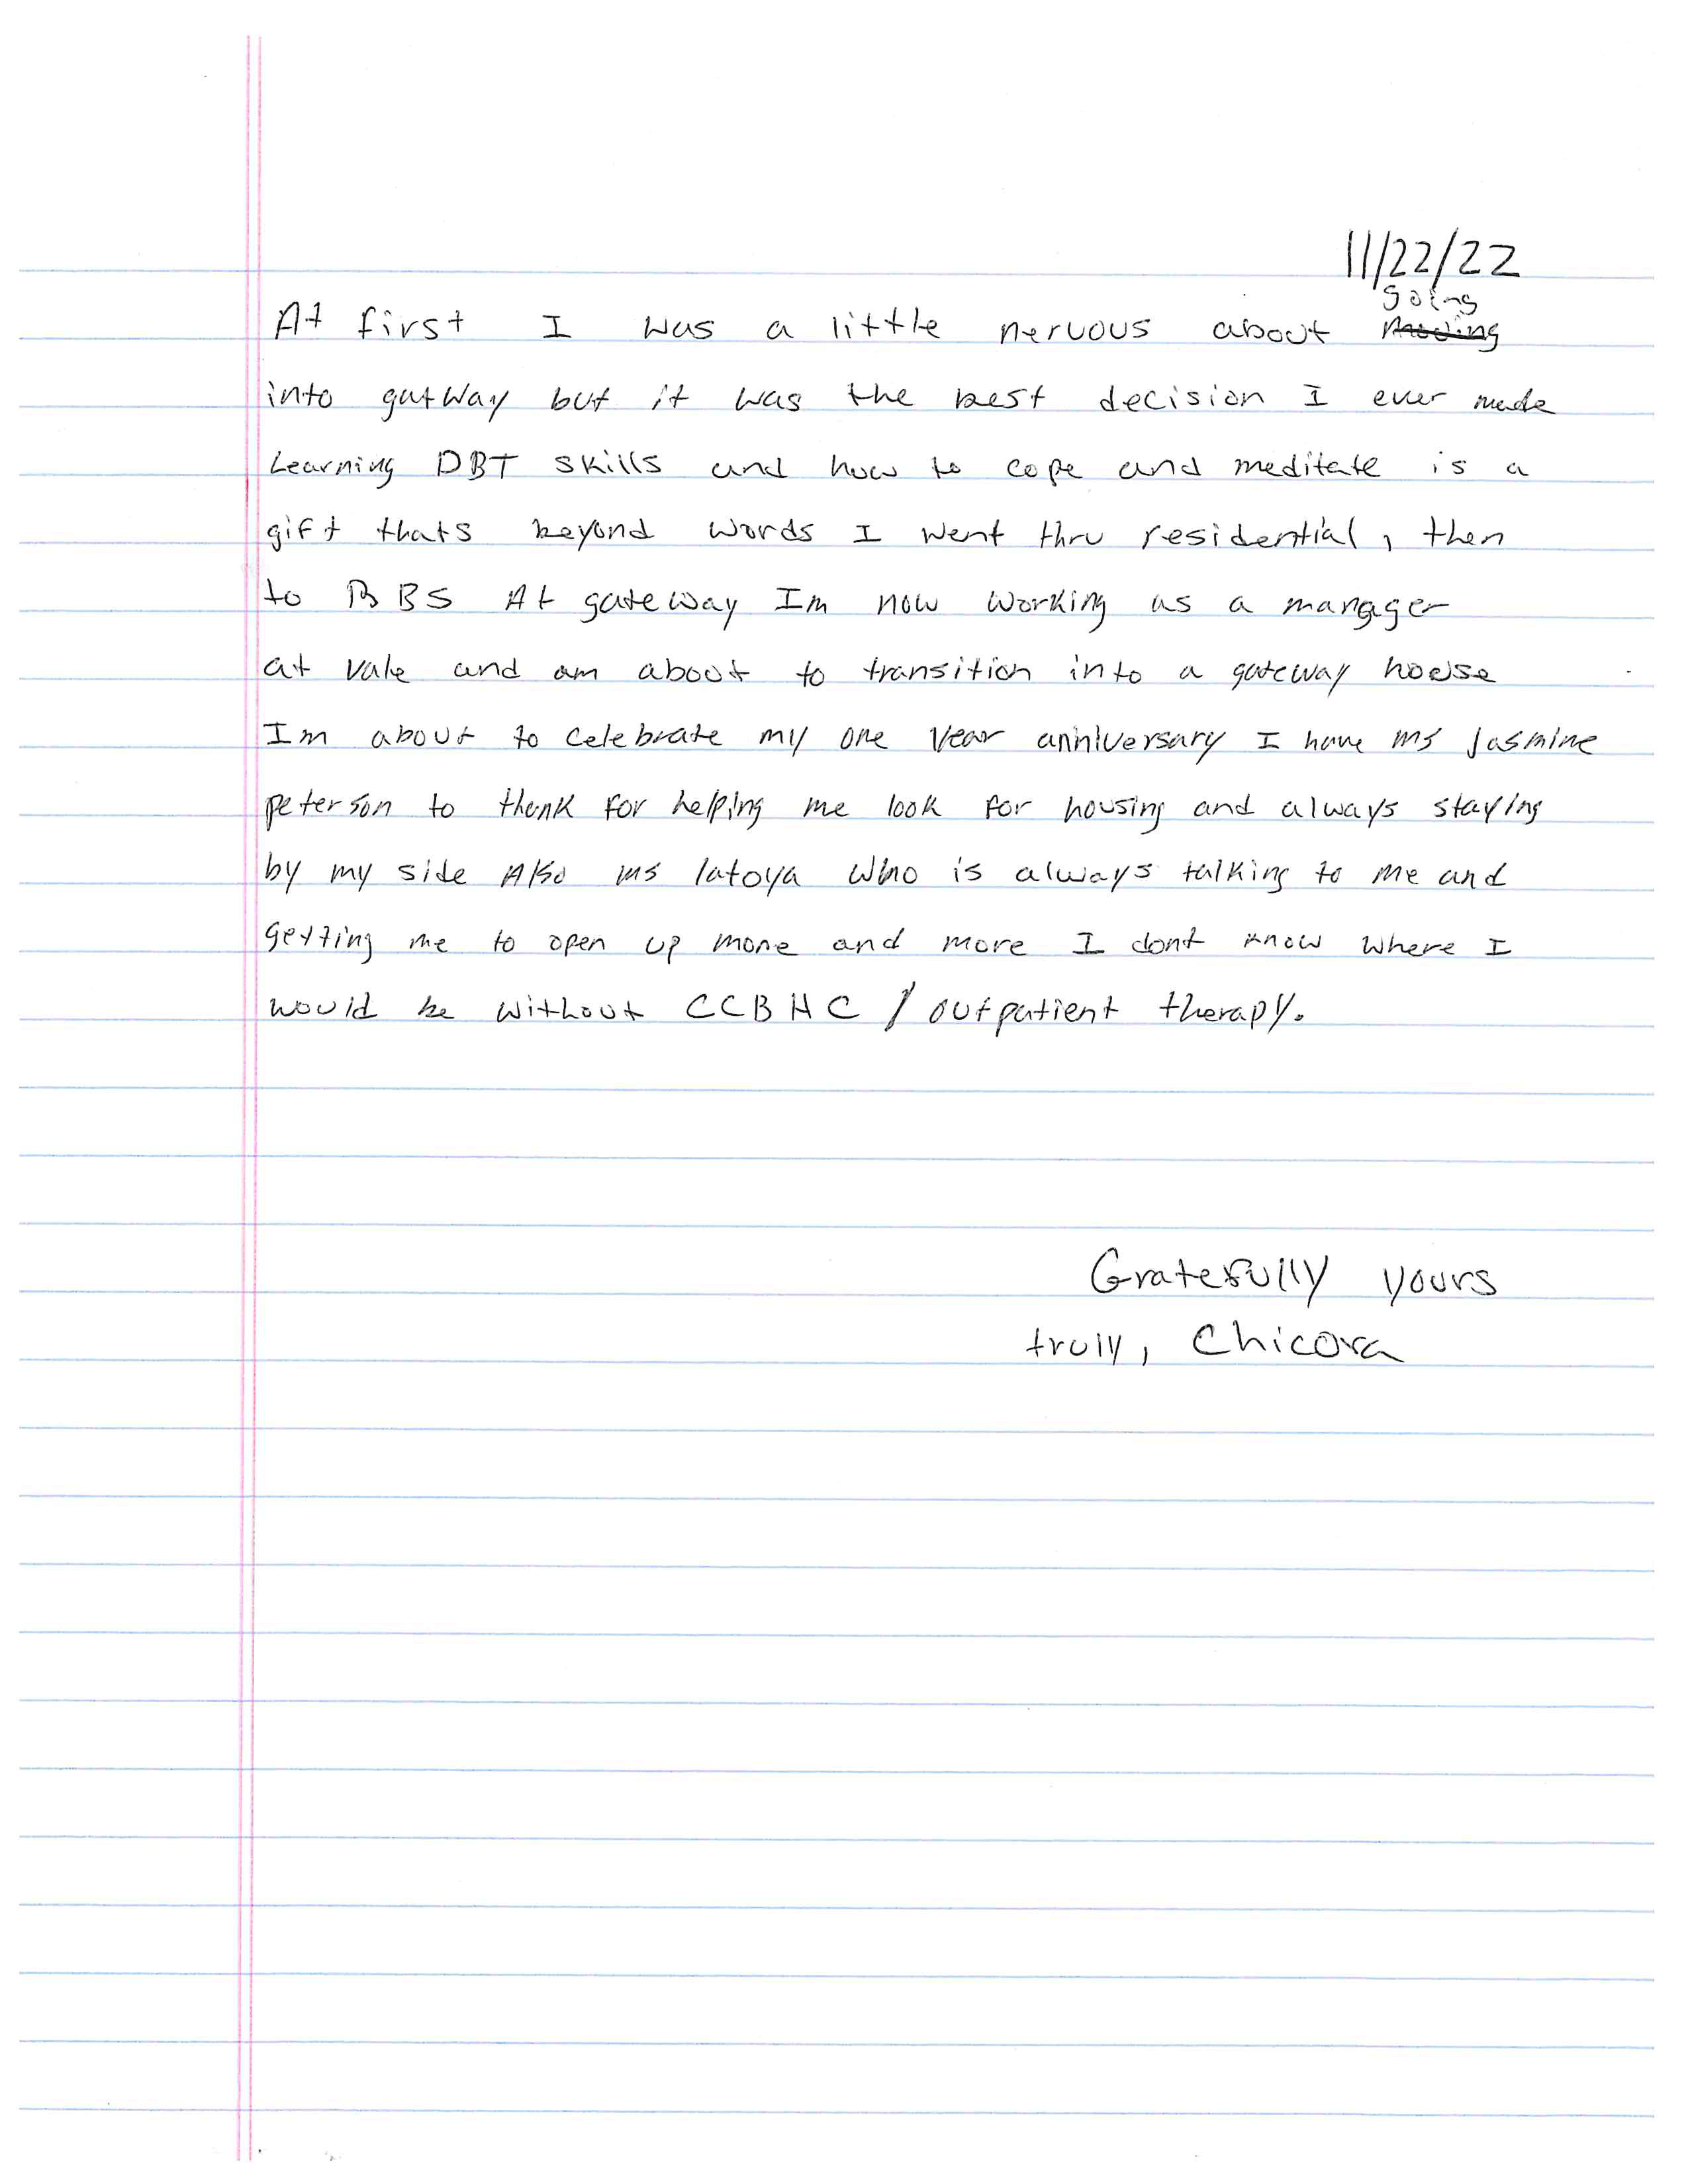 11/22/22
going
At first I was a little nervous about moving
into gatway but it was the best decision I ever made
Learning DBT skills and how to cope and meditate is a
gift thats beyond words I went thru residential, then
to BBS At gateway Im now working as a manager
at vale and am about to transition into a gateway house
Im about to celebrate my one year anniversary I have ms jasmine
peterson to thank for helping me look for housing and always staying
by my side Also ms latoya who is always talking to me and
getting me to open up more and more I dont know where I
would be without CCBHC / outpatient therapy.
Gratefully yours
truly, Chicora